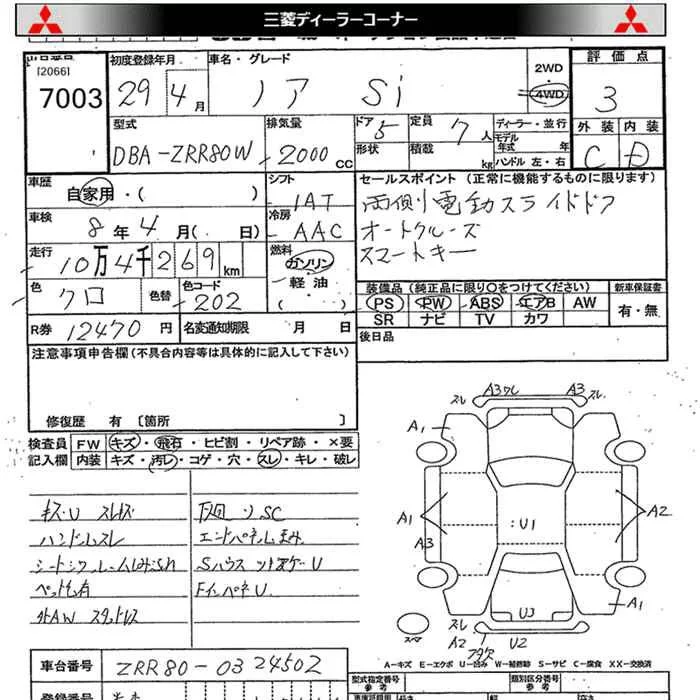 三菱ディーラーコーナー
[2066]
7003
初度登録年月
29 4月
車名・グレード
ノア Si
2WD
・
4WD
評価点
3
外装 内装
C D
型式
DBA-ZRR80W
排気量
2000cc
ドア 5
形状
定員 7人
積載 kg
ディーラー・並行
モデル年式 年
ハンドル 左・右
車歴
自家用・( )
シフト
IAT
車検
8年4月( 日)
冷房
AAC
走行
10万4千269km
燃料
ガソリン
・
軽油
( )
色
クロ
色替
色コード
202
R券 12470円
名変通知期限 月 日
セールスポイント(正常に機能するものに限ります)
両側電動スライドドア
オートクルーズ
スマートキー
装備品(純正品に限り〇をつけてください)
新車保証書
PS PW ABS エアB AW
SR ナビ TV カワ
有・無
後日品
注意事項申告欄(不具合内容等は具体的に記入して下さい)
修復歴 有〔箇所 〕
検査員記入欄
FW キズ・飛石・ヒビ割・リペア跡・×要
内装 キズ・汚レ・コゲ・穴・スレ・キレ・破レ
キズ・U スレキズ
ハンドルスレ
ペット毛有
外AW スタッドレス
下廻りSC
エンドパネルゆがみ
FインパネU
スレ A3ワレ A3 スレ
A1
A1
A3
:U1
A2
A1
U3
スペア
スレ
A2
フタ欠
U2
A-キズ E-エクボ U-凹み W-補修跡 S-サビ C-腐食 XX-交換済
車台番号 ZRR80-0324502
型式指定番号
参考
類別区分番号
参考
登録番号